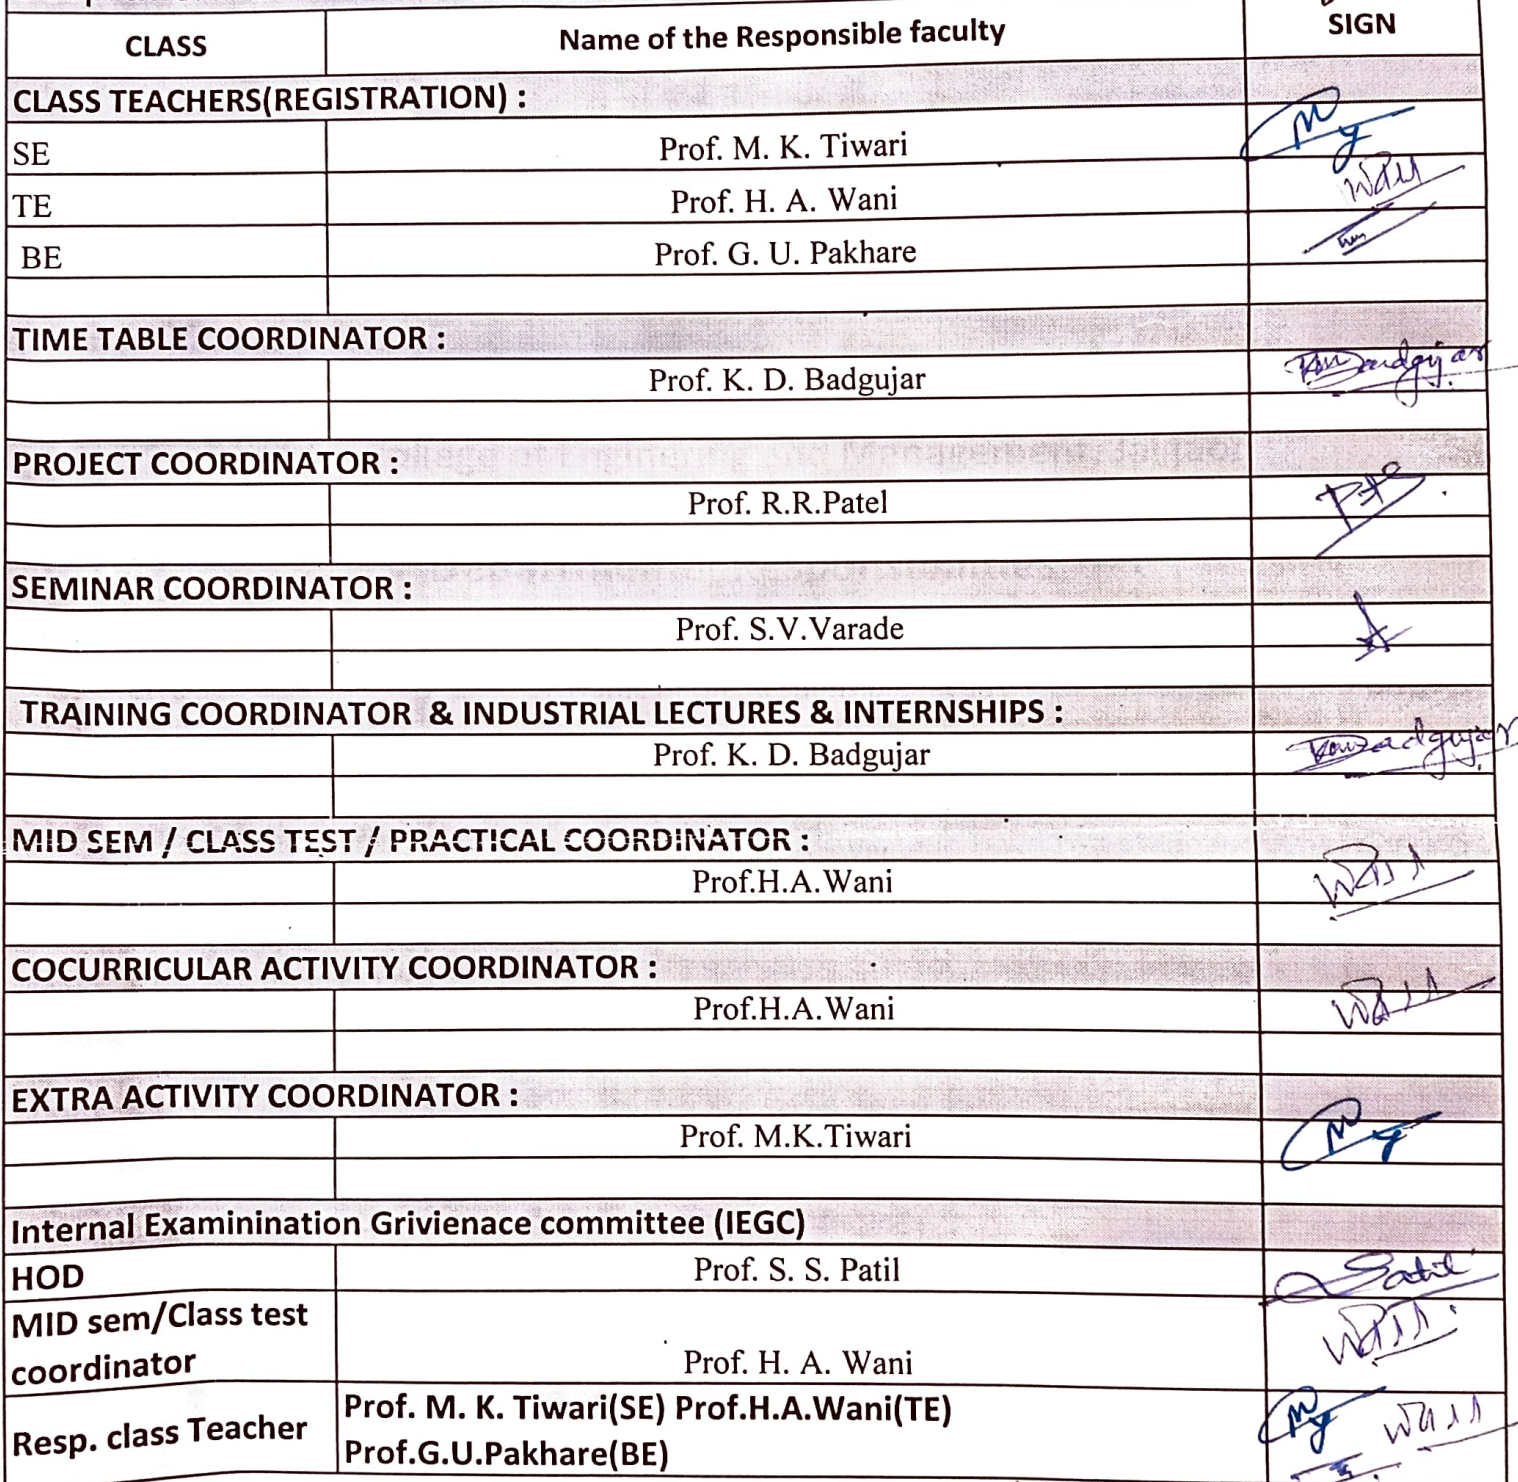 CLASS Name of the Responsible faculty SIGN
CLASS TEACHERS(REGISTRATION) :
SE Prof. M. K. Tiwari
TE Prof. H. A. Wani
BE Prof. G. U. Pakhare
TIME TABLE COORDINATOR :
Prof. K. D. Badgujar
PROJECT COORDINATOR :
Prof. R.R.Patel
SEMINAR COORDINATOR :
Prof. S.V.Varade
TRAINING COORDINATOR & INDUSTRIAL LECTURES & INTERNSHIPS :
Prof. K. D. Badgujar
MID SEM / CLASS TEST / PRACTICAL COORDINATOR :
Prof.H.A.Wani
COCURRICULAR ACTIVITY COORDINATOR :
Prof.H.A.Wani
EXTRA ACTIVITY COORDINATOR :
Prof. M.K.Tiwari
Internal Examinination Grivienace committee (IEGC)
HOD Prof. S. S. Patil
MID sem/Class test
coordinator Prof. H. A. Wani
Resp. class Teacher Prof. M. K. Tiwari(SE) Prof.H.A.Wani(TE)
Prof.G.U.Pakhare(BE)